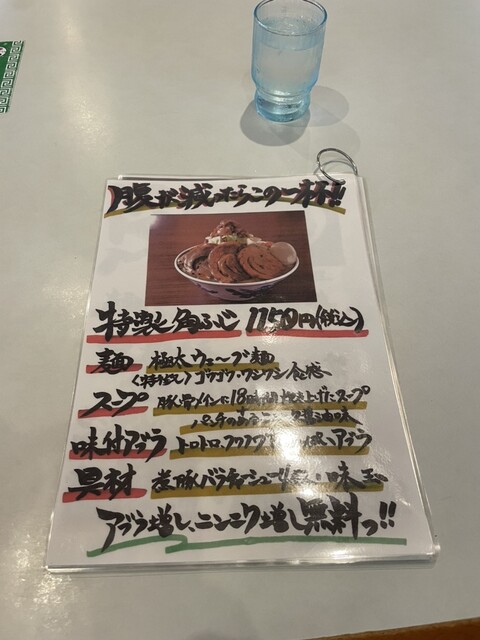 腹が減ったらこの一杯!!
特製 角ふじ 1150円(税込)
麺 極太ウェーブ麺
(特注) ゴワゴワ・ワシワシ食感
スープ 豚骨メインに18時間炊き上げたスープ
パンチのある 醤油味
味付アブラ トロトロ、フワフワ アブラ
具材 豚バラチャーシュー 味玉
アブラ増し、ニンニク増し無料っ!!